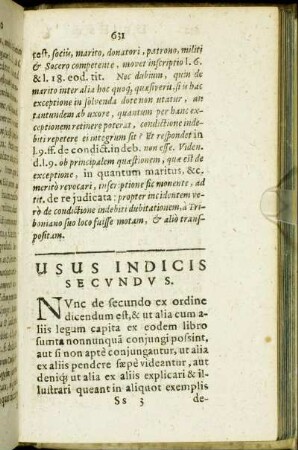 631
test, sociis, marito, donatori, patrono, militi
& Socero competente, movet inscriptio l. 6.
& l. 18. eod. tit. Nec dubium, quin de
marito inter alia hoc quoq; quæsiverit, si is hac
exceptione in solvenda dote non utatur, an
tantundem ab uxore, quantum per hanc ex-
ceptionem retinere poterat, condictione inde-
biti repetere integrum sit? Et respondet in
l. 9. ff. de condict. indeb. non esse. Viden.
d. l. 9. ob principalem quæstionem, quæ est de
exceptione, in quantum maritus, &c.
meritò revocari, inscriptione sic monente, ad
tit. de re judicata: propter incidentem ve-
rò de condictione indebiti dubitationem, à Tri-
boniano suo loco fuisse motam, & aliò trans-
positam.
USUS INDICIS
SECVNDVS.
NVnc de secundo ex ordine
dicendum est, & ut alia cum a-
liis legum capita ex eodem libro
sumta nonnunquã conjungi possint,
aut si non aptè conjungantur, ut alia
ex aliis pendere sæpè videantur, aut
deniq; ut alia ex aliis explicari & il-
lustrari queant in aliquot exemplis
Ss 3 de-